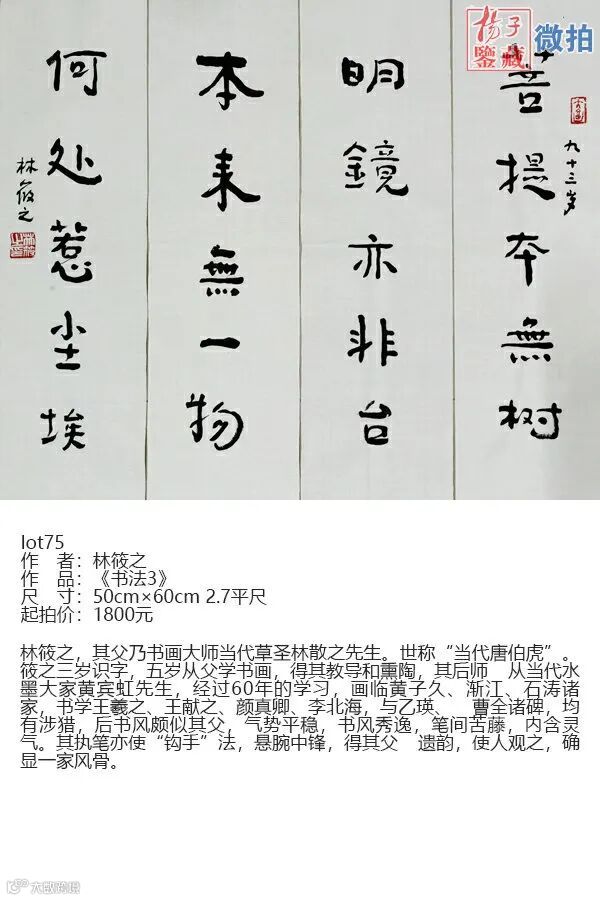 揚子
鑒藏
微拍
菩提本無树
九十三岁
明鏡亦非台
本来無一物
何处惹尘埃
林筱之
lot75
作 者：林筱之
作 品：《书法3》
尺 寸：50cm×60cm 2.7平尺
起拍价：1800元
林筱之，其父乃书画大师当代草圣林散之先生。世称“当代唐伯虎”。
筱之三岁识字，五岁从父学书画，得其教导和熏陶，其后师 从当代水
墨大家黄宾虹先生，经过60年的学习，画临黄子久、渐江、石涛诸
家，书学王羲之、王献之、颜真卿、李北海，与乙瑛、 曹全诸碑，均
有涉猎，后书风颇似其父，气势平稳，书风秀逸，笔间苦藤，内含灵
气。其执笔亦使“钩手”法，悬腕中锋，得其父 遗韵，使人观之，确
显一家风骨。